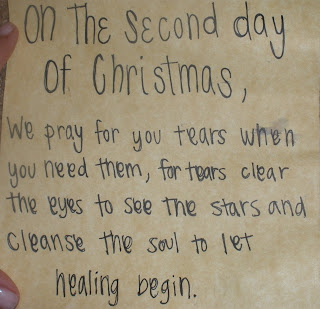 On The Second day
Of Christmas,
We pray for you tears when
you need them, for tears clear
the eyes to see the stars and
cleanse the soul to let
healing begin.